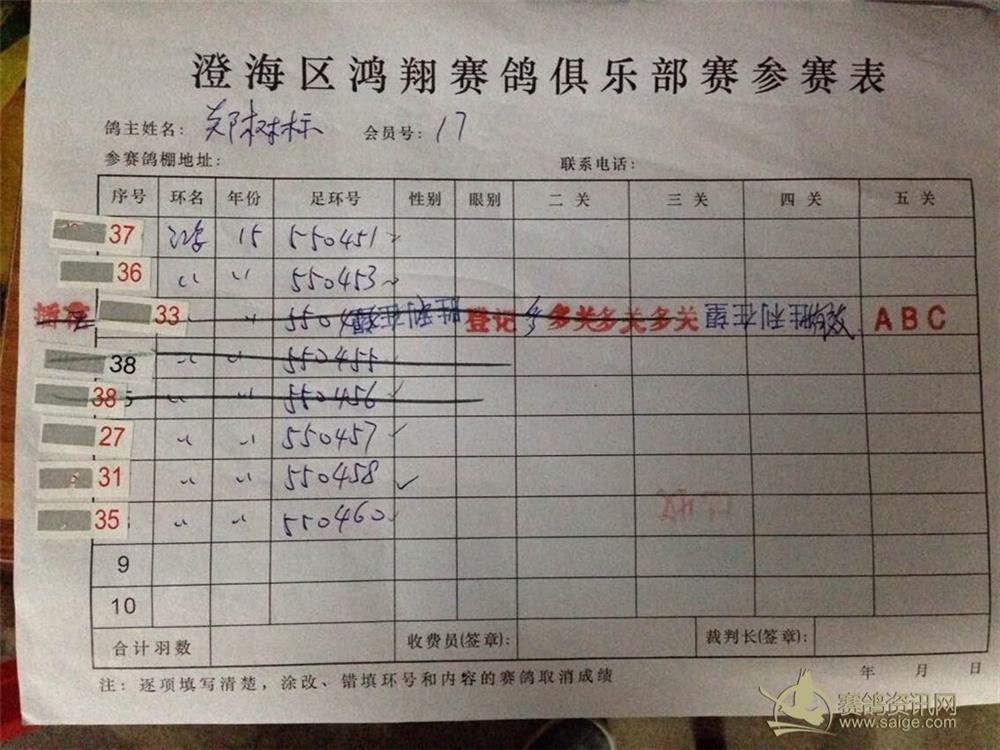 澄海区鸿翔赛鸽俱乐部赛参赛表
鸽主姓名: 郑树标 会员号: 17
参赛鸽棚地址: 联系电话:
序号 环名 年份 足环号 性别 眼别 二关 三关 四关 五关
37 15 550451
36 〃 〃 550453
33 〃 5504 胜利在望 登记 多关多关多关 胜利在望 ABC
38 〃 〃 550455
38 〃 〃 550456
27 〃 〃 550457
31 〃 〃 550458
35 〃 〃 550460
9
10
合计羽数 收费员(签章): 裁判长(签章):
注: 逐项填写清楚,涂改、错填环号和内容的赛鸽取消成绩 年 月 日
赛鸽资讯网
www.saige.com